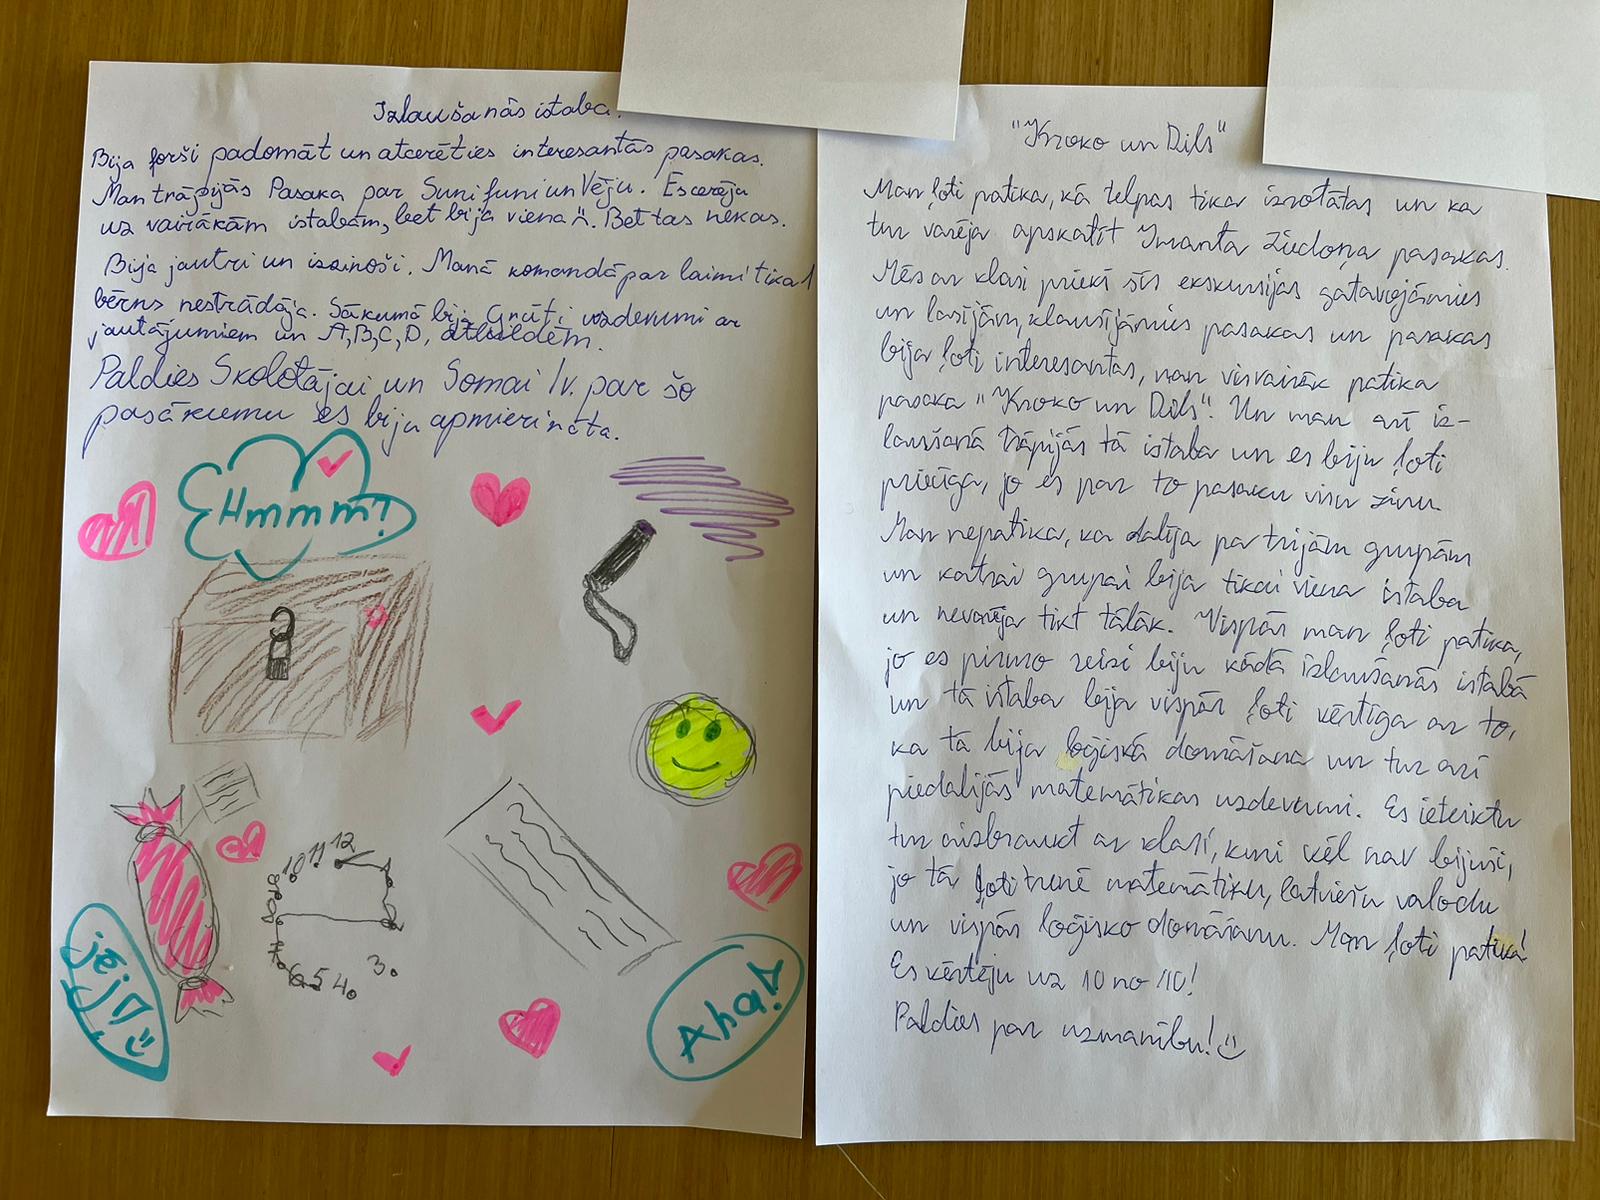 Izlaušanās istaba.
Bija forši padomāt un atcerēties interesantās pasakas.
Man trāpījās Pasaka par Sunīfunīun Vēju. Es cerēju
uz vairākām istabām, bet bija viena :(. Bet tas nekas.
Bija jautri un izzinoši. Manā komandā par laimi tikai 1
bērns nestrādāja. Sākumā bija Grūti uzdevumi ar
jautājumiem un A,B,C,D, atbildēm.
Paldies Skolotājai un Somai Iv. par šo
pasākumu es biju apmierināta.
Hmmm?
jēj!! :)
10 11 12
5 4 3
Aha!!
"Kroko un Dils"
Man ļoti patika, kā telpas tika izrotātas un ka
tur varēja apskatīt Imanta Ziedoņa pasakas.
Mēs ar klasi priekš šīs ekskursijas gatavojāmies
un lasījām, klausījāmies pasakas un pasakas
bija ļoti interesantas, man visvairāk patika
pasaka "Kroko un Dils". Un man arī iz-
laušanā trāpījās tā istaba un es biju ļoti
priecīga, jo es par to pasaku visu zinu.
Man nepatika, ka dalīja pa trijām grupām
un katrai grupai bija tikai viena istaba
un nevarēja tikt tālāk. Vispār man ļoti patika,
jo es pirmo reizi biju kādā izlaušanās istabā
un tā istaba bija vispār ļoti vērtīga ar to,
ka tā bija loģiskā domāšana un tur arī
piedalījās matemātikas uzdevumi. Es ieteiktu
tur aizbraukt ar klasi, kuri vēl nav bijuši,
jo tār ļoti trenē matemātiku, latviešu valodu
un vispār loģisko domāšanu. Man ļoti patika!
Es vērtēju uz 10 no 10!
Paldies par uzmanību! :)